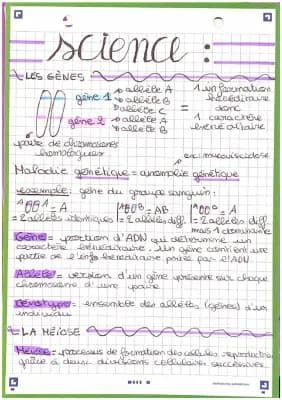 science :
LES GÈNES
allèle A
gène 1 allèle B 1 information
allèle B héréditaire
allèle C = donc
gène 2 allèle A 1 caractère
allèle B héréditaire
paire de chromosomes
homologues ex: mucoviscidose
Maladie génétique = anomalie génétique
exemple: gène du groupe sanguin:
= A = AB = A
= 2 allèles identiques = 2 allèles diff. = 2 allèles diff.
mais 1 dominante
Gène = portion d'ADN qui détermine un
caractère héréditaire. Un gène contient une
partie de l'info héréditaire portée par l'ADN.
Allèle = version d'un gène présente sur chaque
chromosome d'une paire
Génotype = ensemble des allèles (gènes) d'un
individu
LA MÉIOSE
Méiose = processus de formation des cellules reproductrices
grâce à deux divisions cellulaires successives.